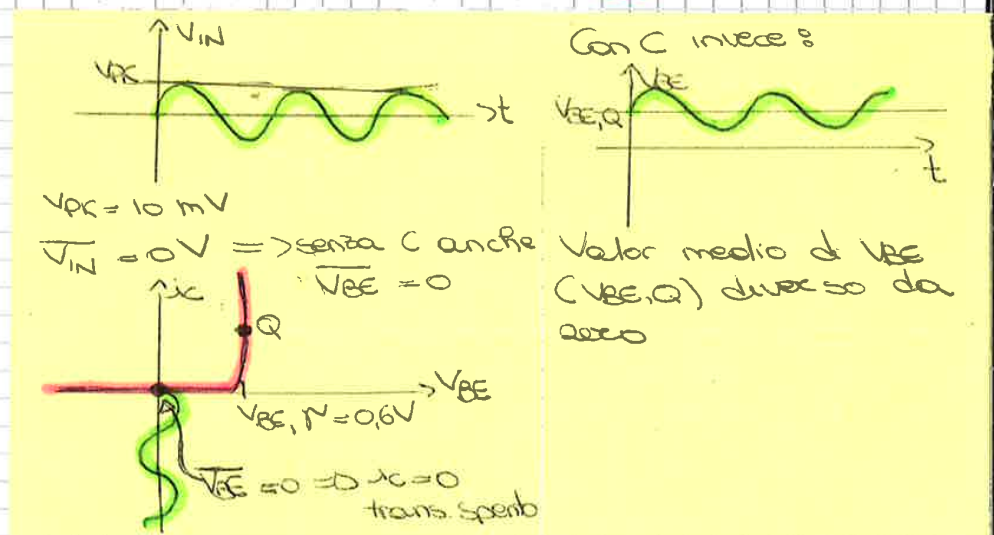 VIN
VPK
t
VPK = 10 mV
VIN = 0V => senza C anche
VBE = 0
ic
Q
VBE
VBE,γ = 0,6V
VBE = 0 => ic = 0
trans. spento
Con C invece:
VBE
VBE,Q
t
Valor medio di VBE
(VBE,Q) diverso da
zero